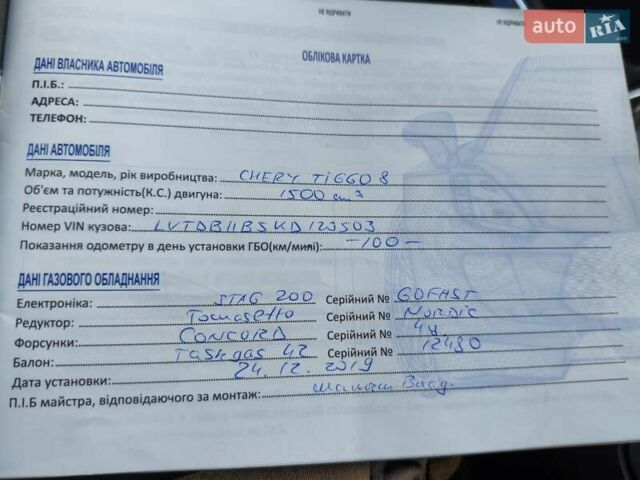 НЕ ВІДРИВАТИ
НЕ ВІДРИВАТИ
auto RIA .com
ОБЛІКОВА КАРТКА
ДАНІ ВЛАСНИКА АВТОМОБІЛЯ
П.І.Б.:
АДРЕСА:
ТЕЛЕФОН:
ДАНІ АВТОМОБІЛЯ
Марка, модель, рік виробництва: CHERY TIGGO 8
Об'єм та потужність(К.С.) двигуна: 1500 cm³
Реєстраційний номер:
Номер VIN кузова: LVTDB11B5KD123503
Показання одометру в день установки ГБО(км/милі): -100-
ДАНІ ГАЗОВОГО ОБЛАДНАННЯ
Електроніка: STAG 200 Серійний № GOFAST
Редуктор: Tomasetto Серійний № NORDIC
Форсунки: CONCORD Серійний № 4у
Балон: Tashgas 42 Серійний № 12480
Дата установки: 24.12.2019
П.І.Б майстра, відповідаючого за монтаж: